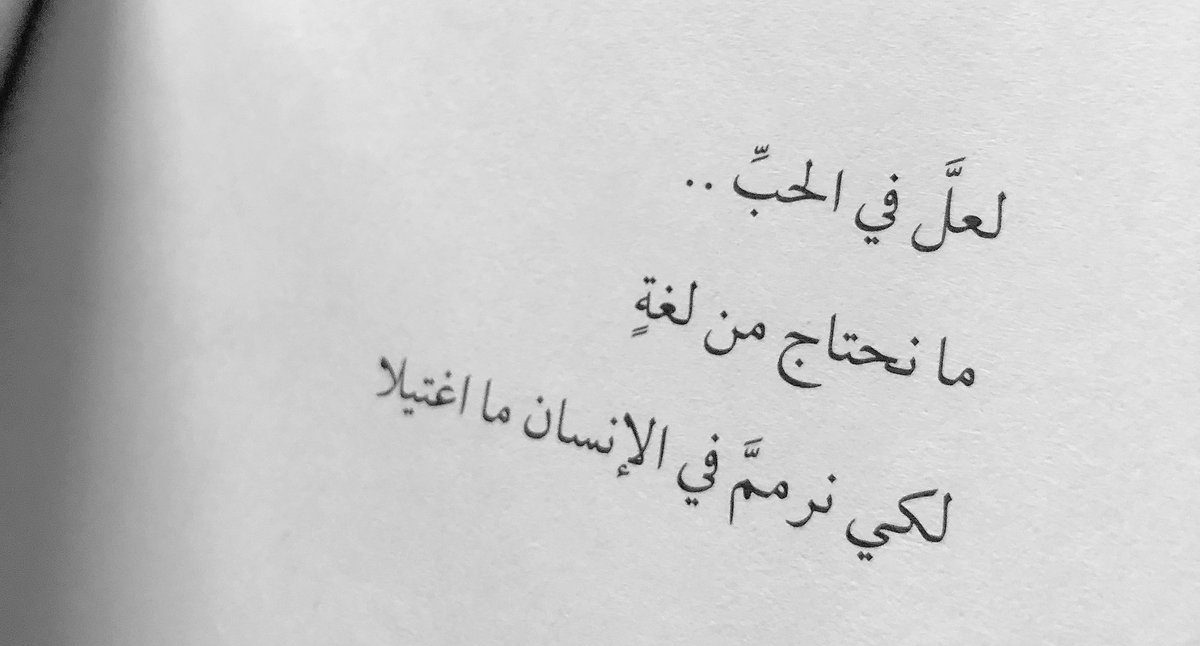 لعلَّ في الحبِّ ..
ما نحتاج من لغةٍ
لكي نرممَّ في الإنسان ما اغتيلا